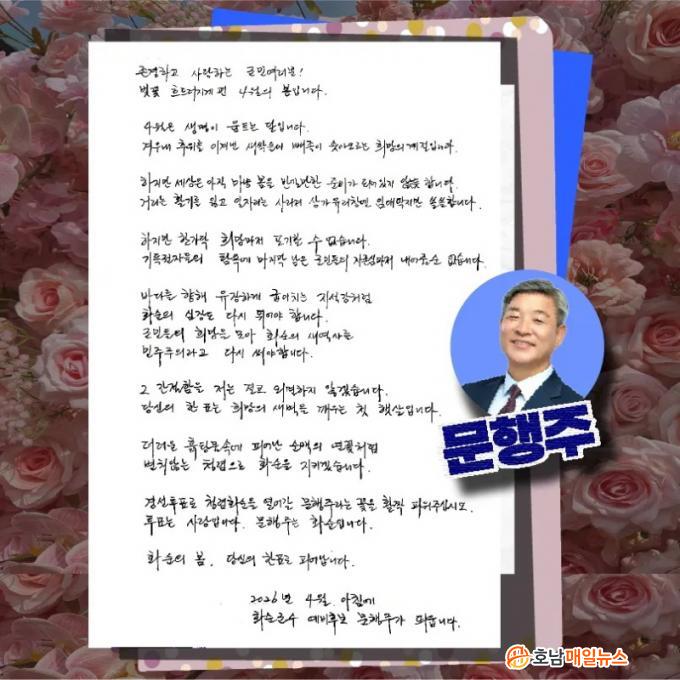 존경하고 사랑하는 군민여러분!
벚꽃 흐드러지게 핀 4월의 봄입니다.
4월은 생명이 움트는 달입니다.
겨우내 추위를 이겨낸 새싹들이 솟아오르는 희망의 계절입니다.
하지만 세상은 아직 따뜻 봄을 반길만한 준비가 되어있지 않은듯 합니다.
거리는 활기를 잃고 일자리는 사라져 상가 유리창엔 임대딱지만 쓸쓸합니다.
하지만 한가닥 희망마저 포기할 수 없습니다.
기득권자들의 탐욕에 마지막 남은 군민들의 자존심마저 내어줄순 없습니다.
바다를 향해 유장하게 굽이치는 지석강처럼
화순의 심장은 다시 뛰어야 합니다.
군민들의 희망을 모아 화순의 새역사는
민주주의라고 다시 써야합니다.
그 간절함을 저는 결코 외면하지 않겠습니다.
당신의 한 표는 희망의 새벽을 깨우는 첫 햇살입니다.
더러운 흙탕물속에 피어난 순백의 연꽃처럼
변치않는 청렴으로 화순을 지키겠습니다.
경선투표로 청렴화순을 열어갈 문행주라는 꽃을 활짝 피워주십시오.
투표는 사랑입니다. 문행주는 화순입니다.
화순의 봄, 당신의 한표로 피어납니다.
2026년 4월 아침에
화순군수 예비후보 문행주가 띄웁니다.
문행주
호남매일뉴스